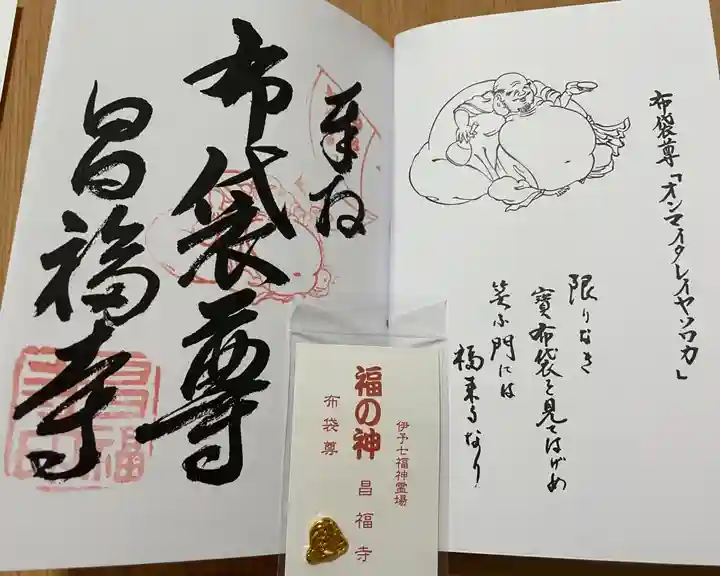 布袋尊「オンマイタレイヤソワカ」
限りなき
寶布袋を見てはげめ
笑ふ門には
福来るなり
奉拝
布袋尊
昌福寺
伊予七福神霊場
福の神
昌福寺
布袋尊